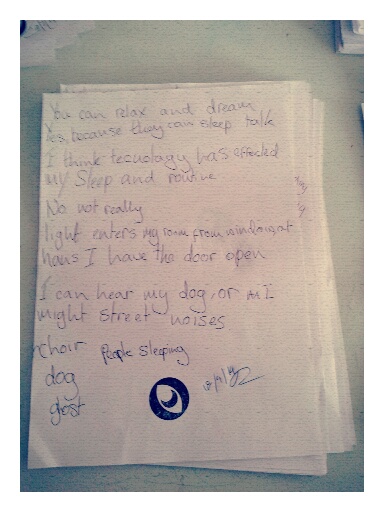 You can relax and dream
Yes, because they can sleep talk
I think tecnology has effected
my sleep and routine
No not really
light enters my room from window, at
I have the door open
I can hear my dog, or
might street noises
choir people sleeping
dog
ghost